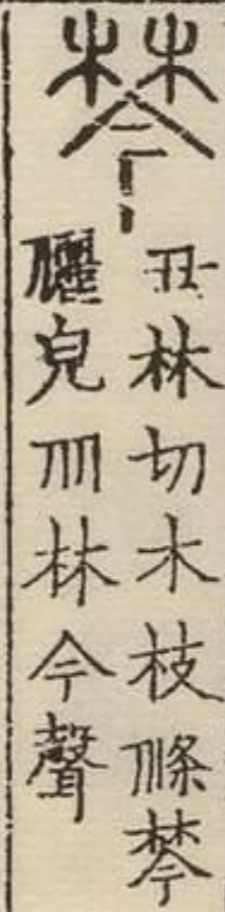 棽
丑林切木枝條棽
儷皃从林今聲